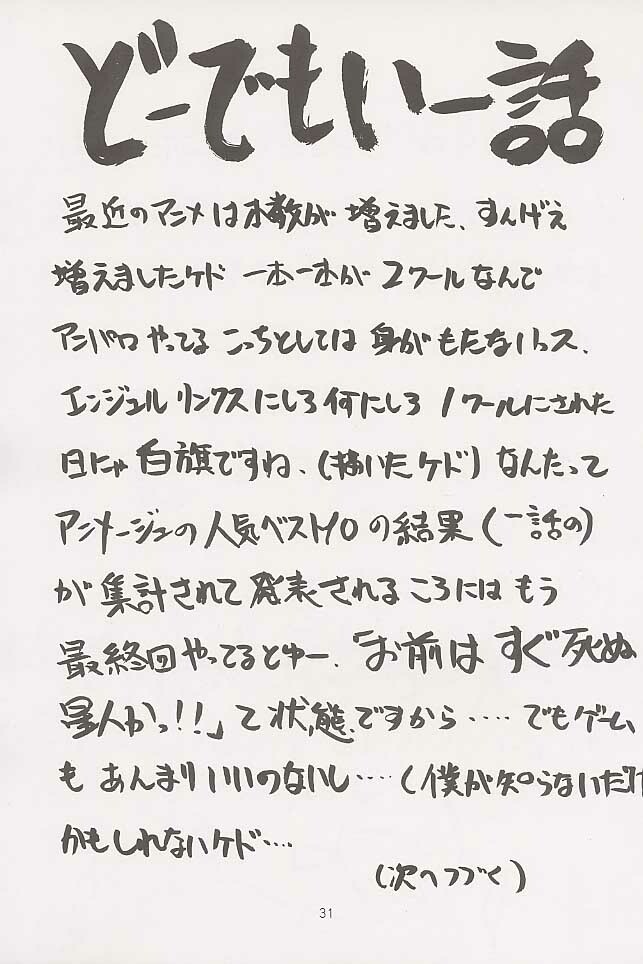 どーでもいー話
最近のアニメは本数が増えました、すんげえ
増えましたケド 一本一本が 2クールなんで
アンパロやってる こっちとしては 身がもたないっス、
エンジェルリンクスにしろ何にしろ 1クールにされた
日にゃ 白旗ですね、(描いたケド) なんたって
アニメージュの人気ベスト10の結果 (一話の)
が 集計されて 発表される ころには もう
最終回やってるとゆー、「お前は すぐ死ぬ
星人かっ!!」て 状態ですから‥‥ でもゲーム
も あんまりいいのないし‥‥ (僕が知らないだけ
かもしれないケド‥‥
(次へつづく)
31